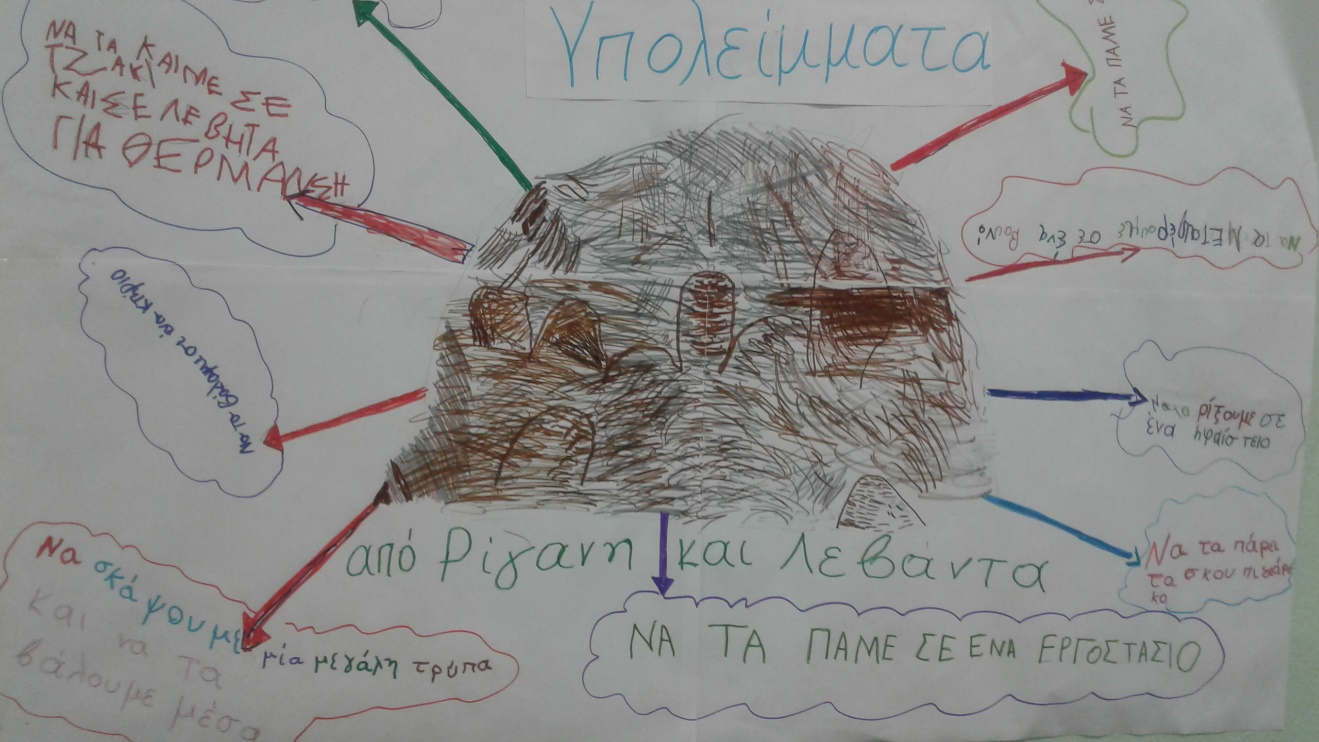 Υπολείμματα
ΝΑ ΤΑ ΚΑΙΜΕ ΣΕ
ΤΖΑΚΙ
ΚΑΙ ΣΕ ΛΕΒΗΤΑ
ΓΙΑ ΘΕΡΜΑΝΣΗ
ΝΑ ΤΑ ΠΑΜΕ
Να τα Μεταφέρουμε σε ένα βουνό
Να τα βάλουμε σε ένα κτήριο
ρίξουμε σε
ένα ηφαίστειο
από Ρίγανη και Λεβάντα
Να τα πάρει
το σκουπιδιάρι
κο
Να σκάψουμε
μία μεγάλη τρύπα
Και να τα
βάλουμε μέσα
ΝΑ ΤΑ ΠΑΜΕ ΣΕ ΕΝΑ ΕΡΓΟΣΤΑΣΙΟ